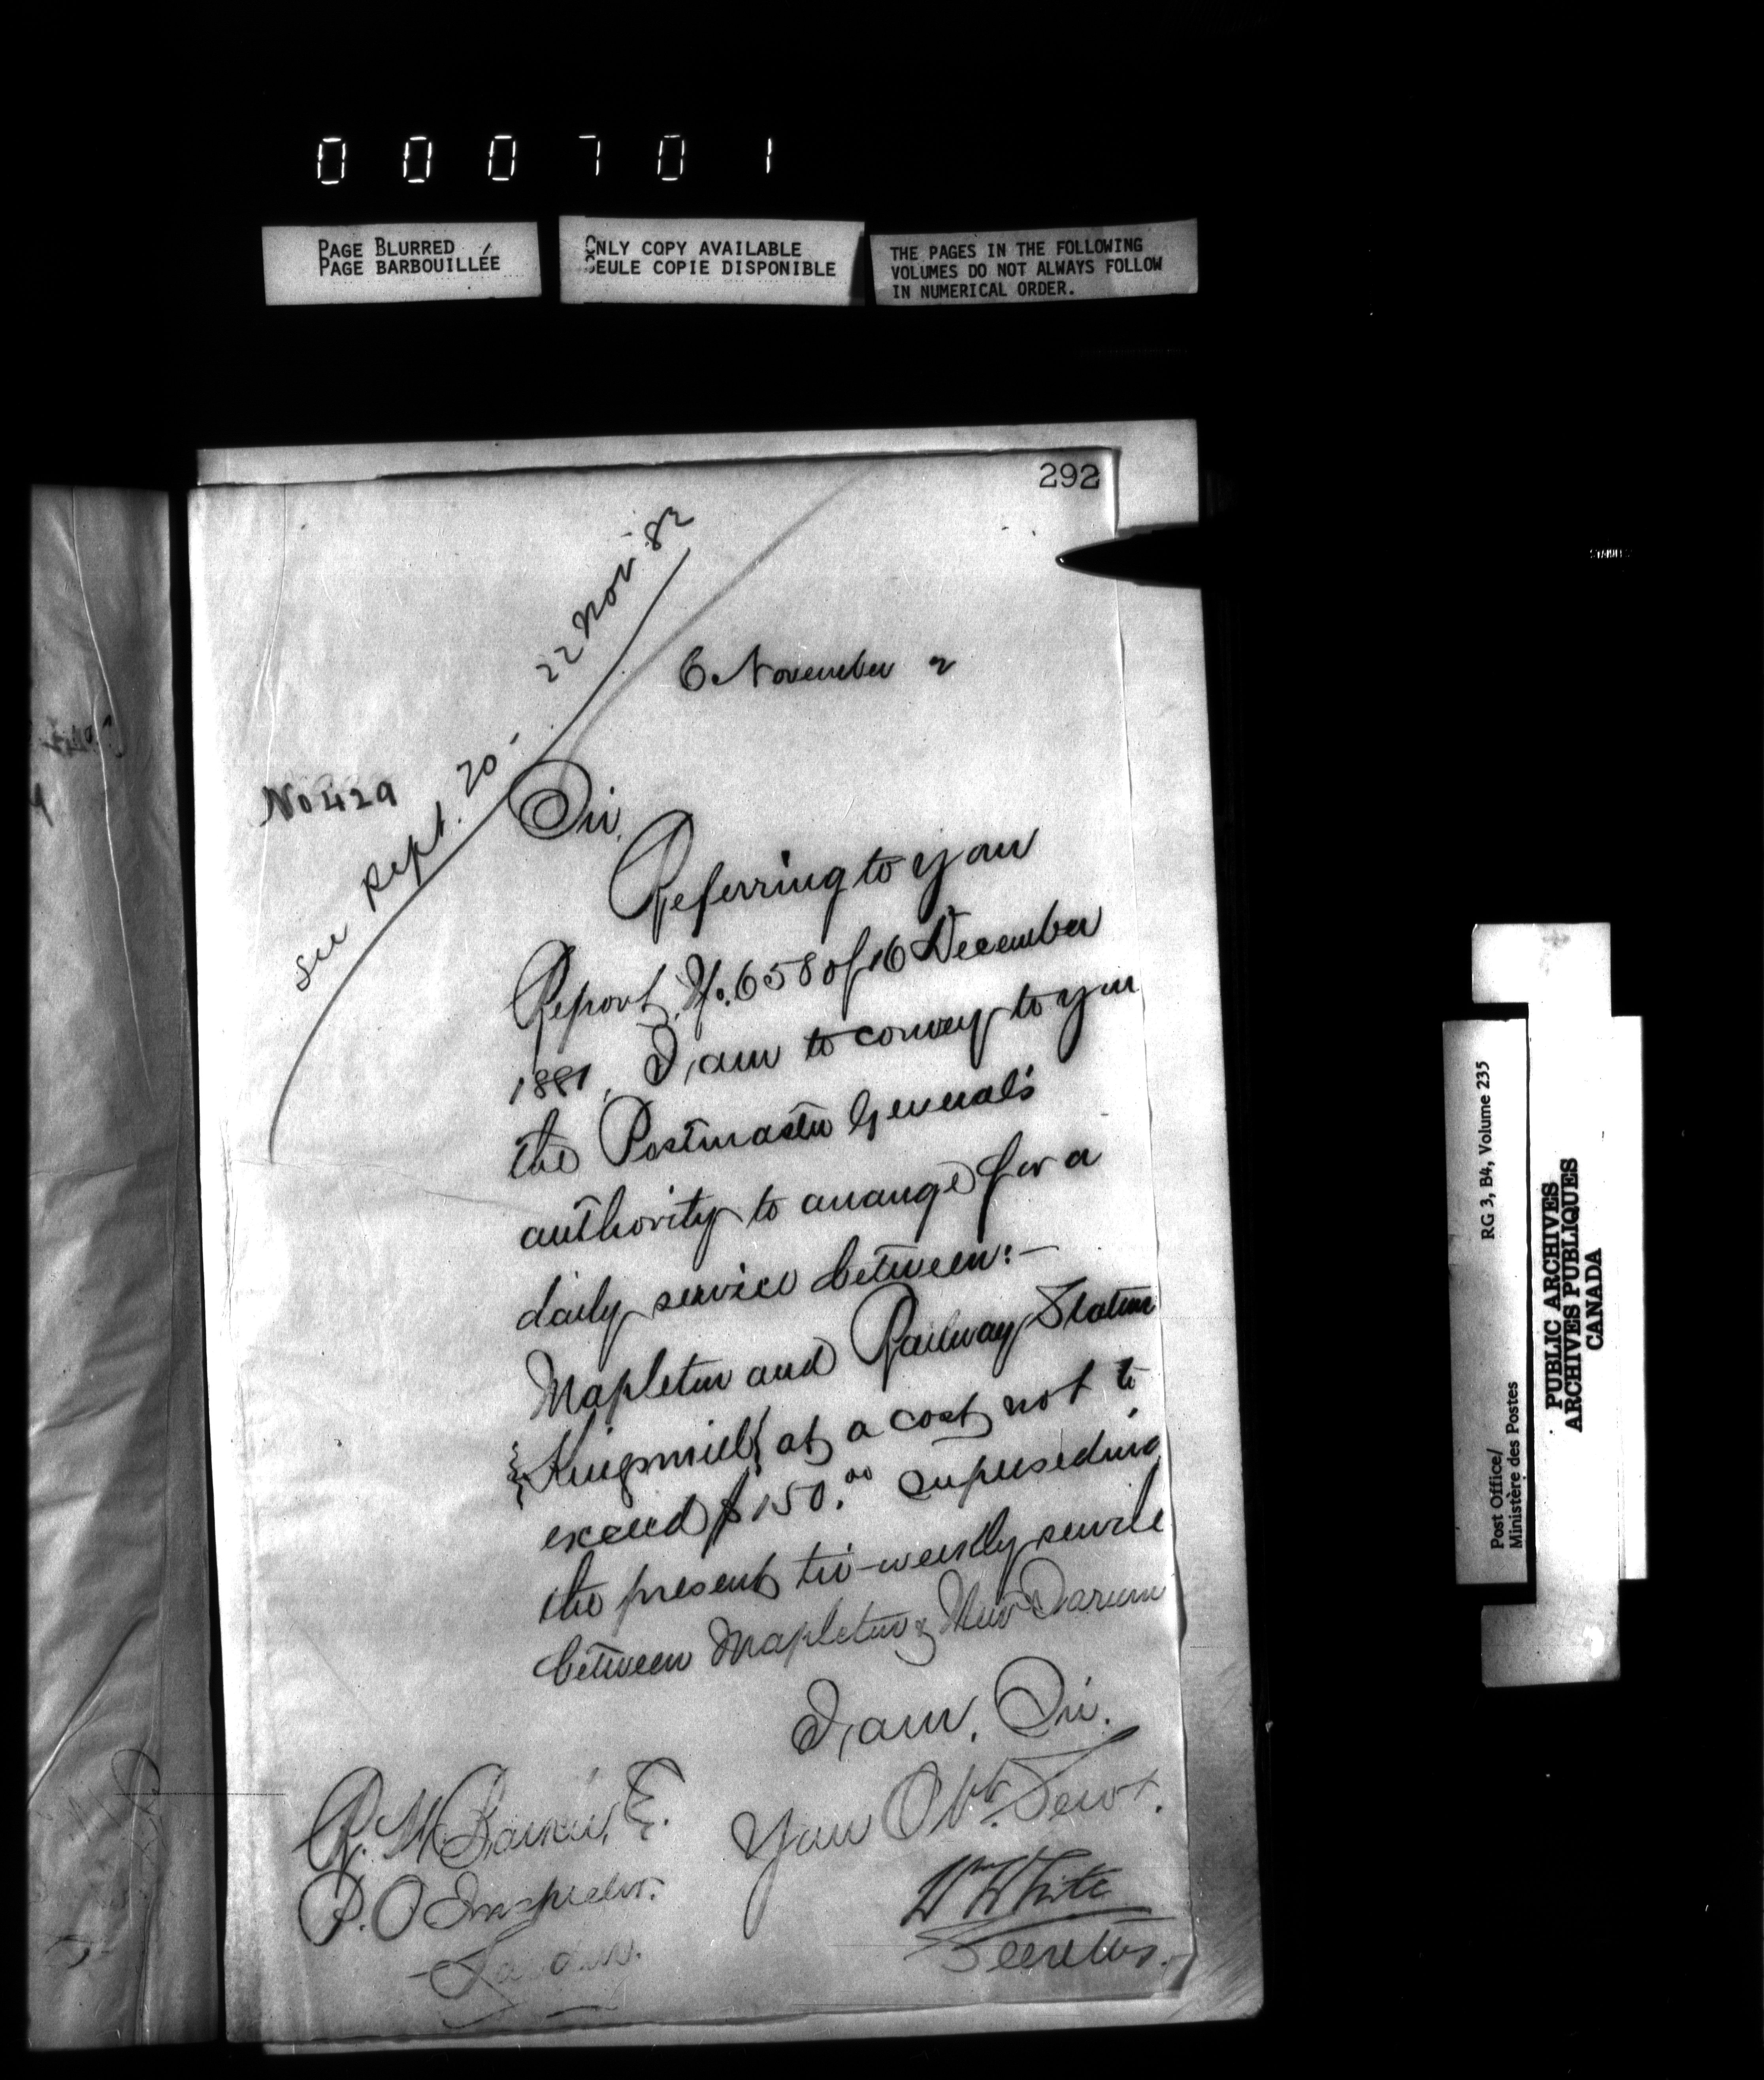 000701
PAGE BLURRED
PAGE BARBOUILLÉE
ONLY COPY AVAILABLE
SEULE COPIE DISPONIBLE
THE PAGES IN THE FOLLOWING
VOLUMES DO NOT ALWAYS FOLLOW
IN NUMERICAL ORDER.
292
see Rept. 70 - 22 Nov 82
6 November 2
No 429
Sir,
Referring to your
Report No. 658 of 16 December
1881, I am to convey to you
the Postmaster General's
authority to arrange for a
daily service between:-
Mapleton and Railway Station
{Kingsmill} at a cost not to
exceed $150.00 superseding
the present tri-weekly service
between Mapleton & New Sarum
I, am, Sir.
Your Obt. Servt.
R. W. Barker, E.
P.O Inspector.
London.
Wm White
Secretary.
Post Office/ RG 3, B4, Volume 235
Ministère des Postes
PUBLIC ARCHIVES
ARCHIVES PUBLIQUES
CANADA